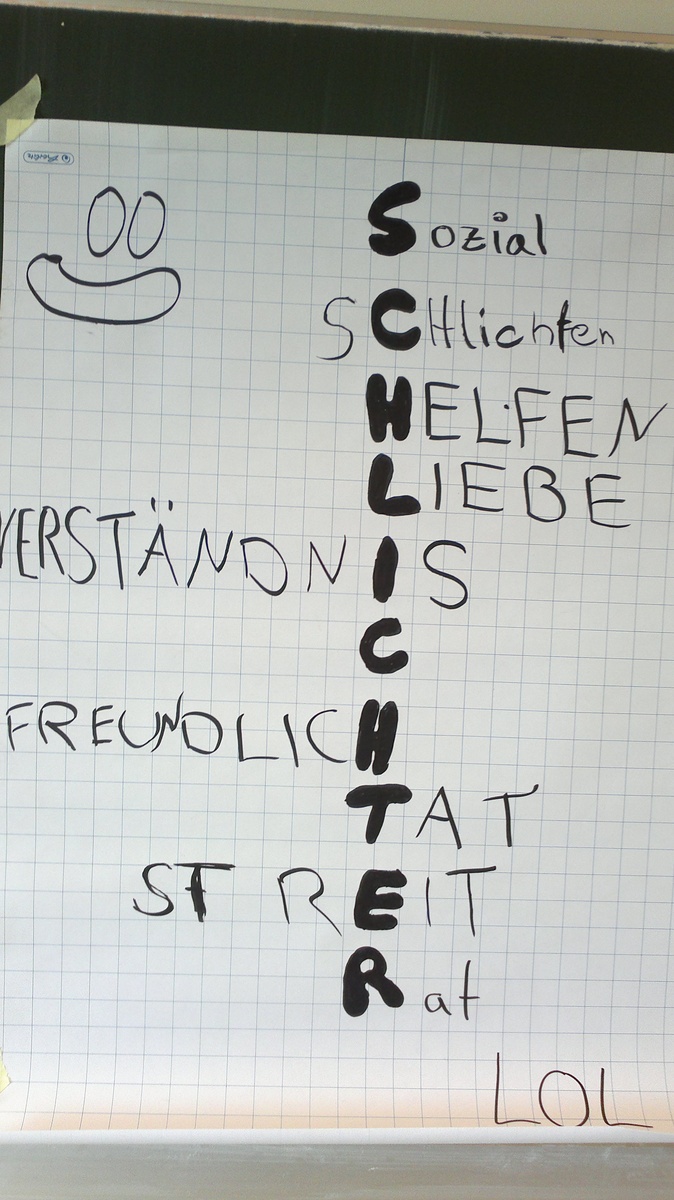 Sozial
SCHlichten
HELFEN
LIEBE
VERSTÄNDNIS
C
FREUNDLICH
TAT
STREIT
Rat
LOL